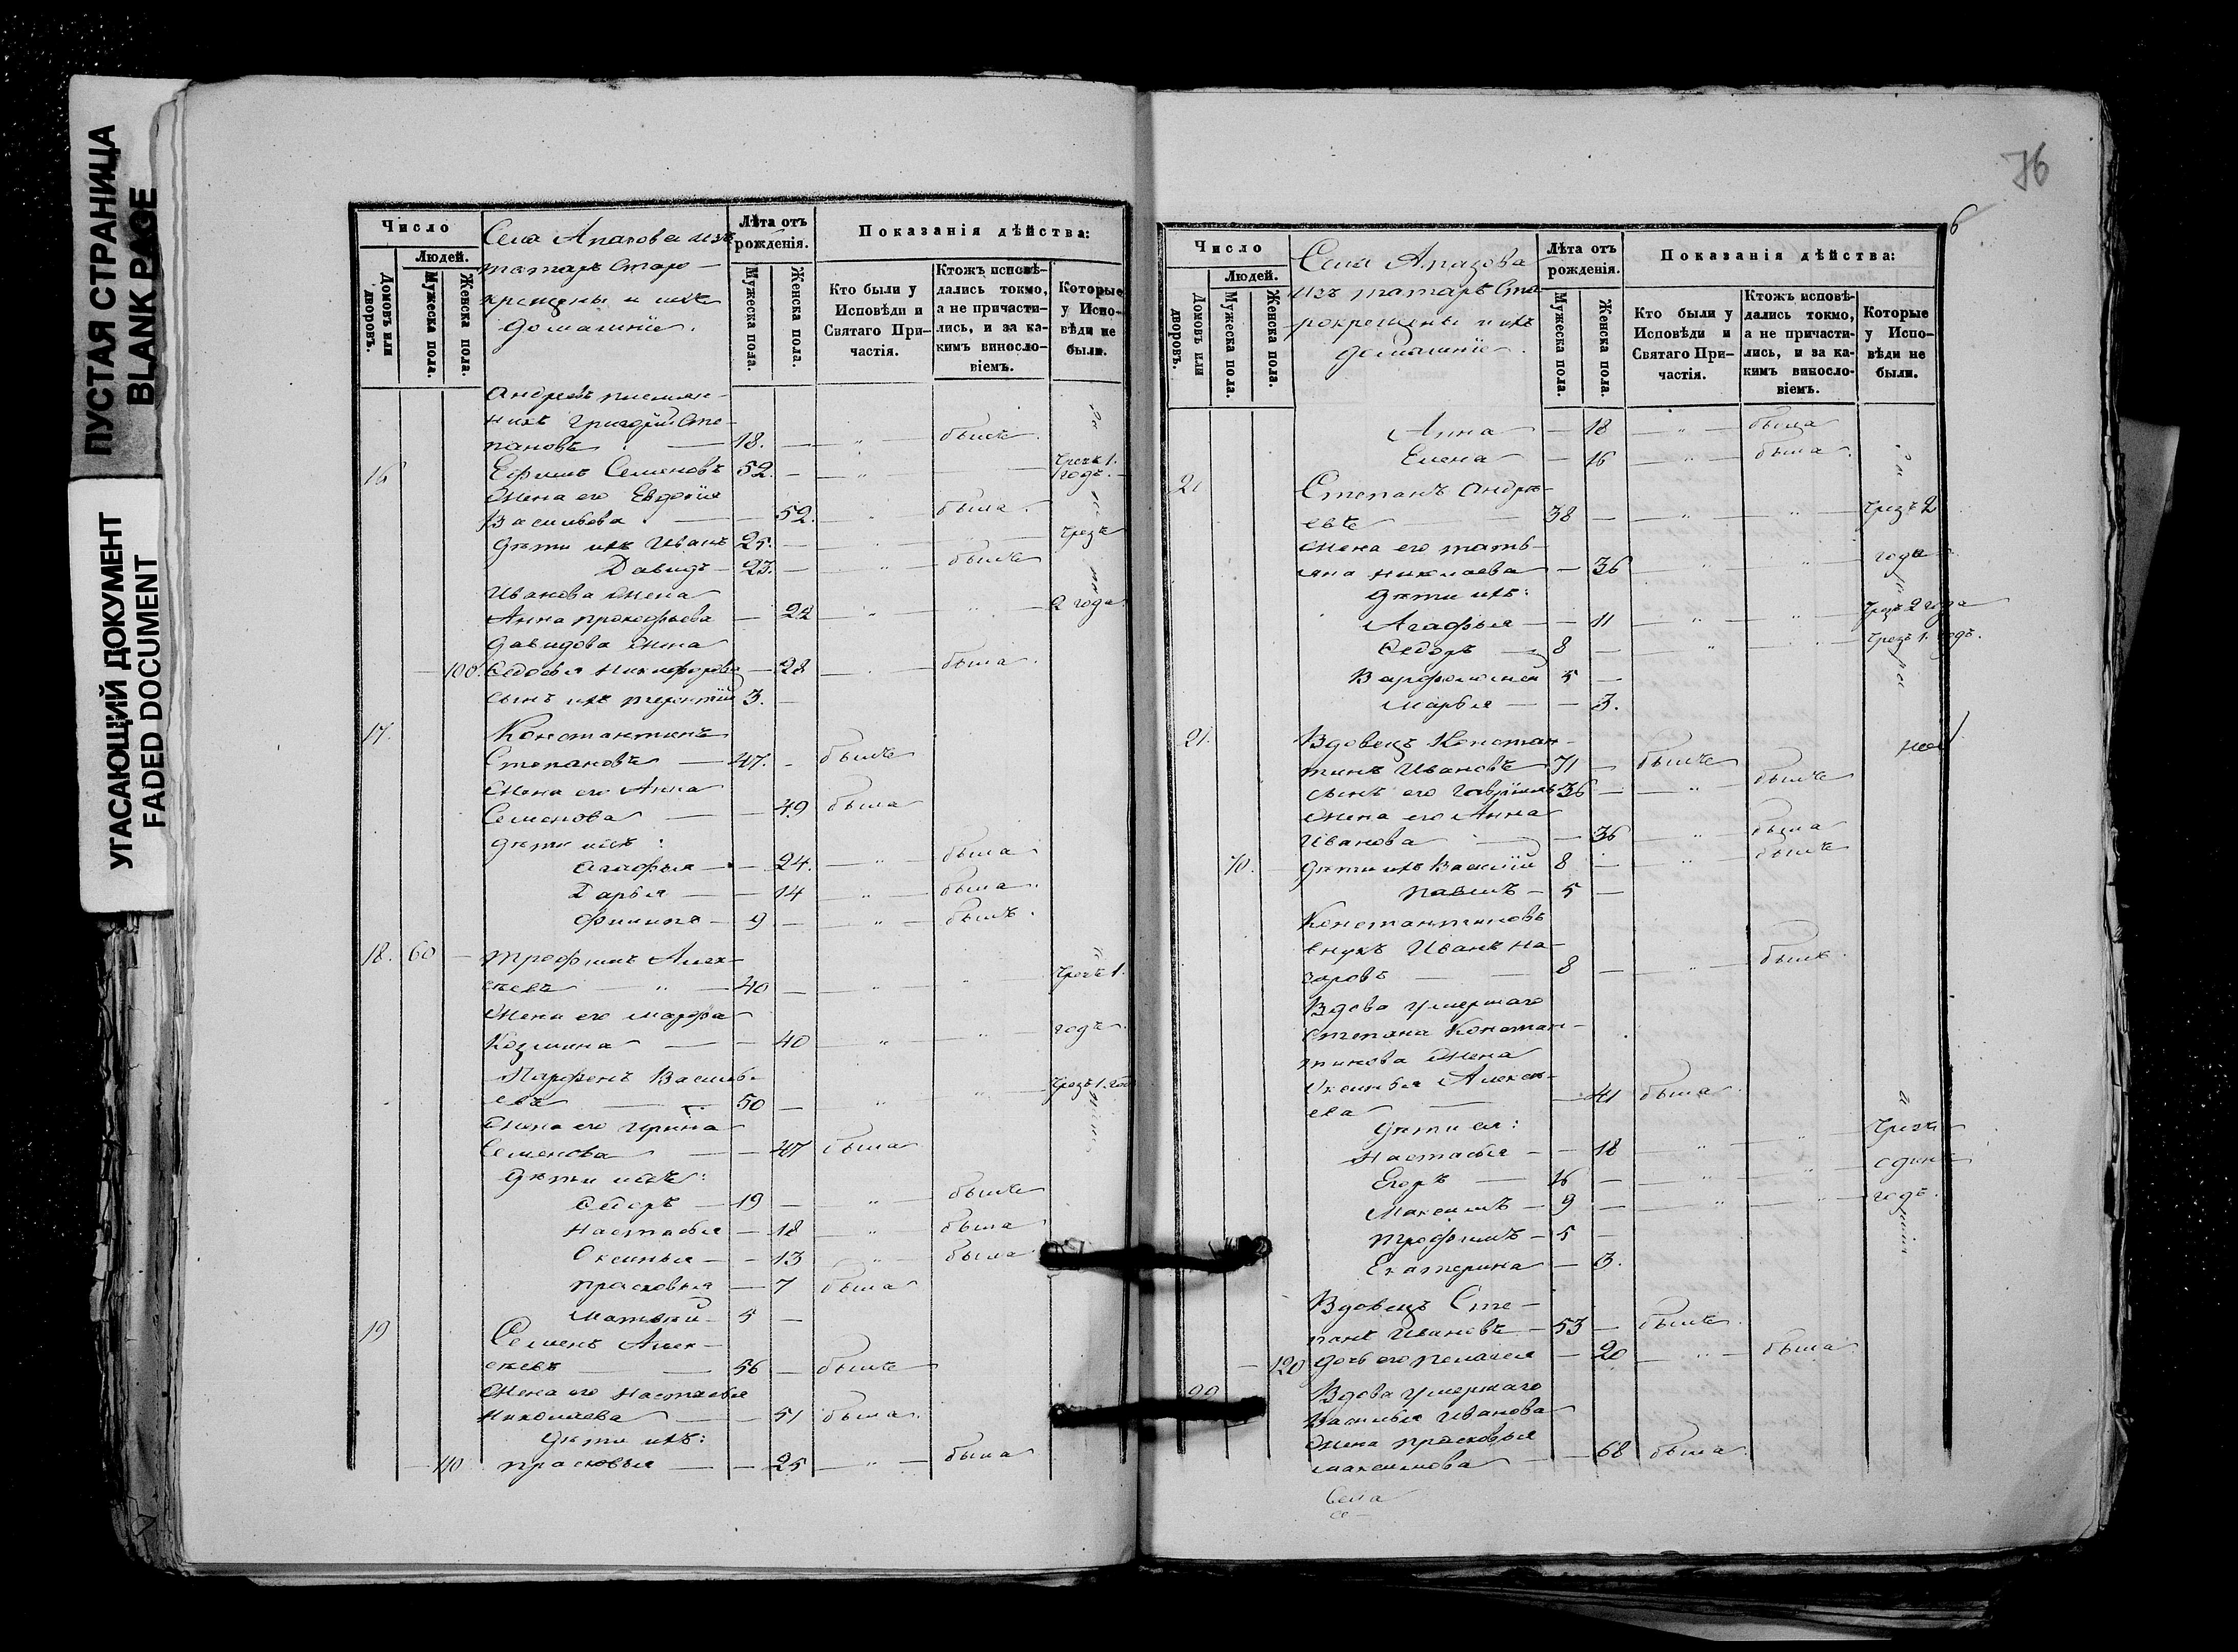 ПУСТАЯ СТРАНИЦА
BLANK PAGE
УГАСАЮЩИЙ ДОКУМЕНТ
FADED DOCUMENT
Число
Людей.
Домовъ или дворовъ.
Мужеска пола.
Женска пола.
Села Апазова изъ
татаръ старо-
крещены и ихъ
домашніе.
Лѣта отъ рожденія.
Мужеска пола.
Женска пола.
Показанія дѣйства:
Кто были у Исповѣди и Святаго При-частія.
Ктожъ исповѣ-дались токмо, а не причасти-лись, и за ка-кимъ винословіемъ.
Которые у Испо-вѣди не были.
Андреевъ
Григорій Сте-
пановъ 18. — " — былъ
16 Ефимъ Семеновъ 52. — " — чрезъ 1. годъ
Жена его
Васильева — 52. былъа
дѣти ихъ Иванъ 25. — чрезъ
Давидъ — 23. — " — былъ
Иванова жена
Анна Прокофьева — 22 " " 2 года
Давидова жена
— 100. Федосья Никифорова — 28 — была
сынъ ихъ Терентій 3. —
17. Константинъ
Степановъ — 47. — былъ
Жена его Анна
Семенова — 49 была
дѣти ихъ:
Агафья — 24. — " — была
Дарья — 14 — " — была
Филиппъ — 9 — " — былъ
18. 60 — Трофимъ Алек-
сѣевъ — " — 40 — " — " — чрезъ 1.
Жена его Марфа
Козмина — 40 " " годъ
Парфенъ Василь-
евъ — 50 — " — " — чрезъ 1. годъ
Жена его Ирина
Семенова — 47 была
дѣти ихъ:
Ѳедоръ — 19 — " — былъ
Настасья — 18 " была
Оксинья — 13 " была
Прасковья — 7 была
Матвѣй — 5 —
19 Семенъ Алек-
сѣевъ — 56 — былъ
Жена его Настасья
Николаева — 51 была
дѣти ихъ:
— 110 Прасковья — 25 — " — была
76
6
Число
Людей.
Домовъ или дворовъ.
Мужеска пола.
Женска пола.
Села Апазова
изъ татаръ ста-
рокрещены и ихъ
домашніе.
Лѣта отъ рожденія.
Мужеска пола.
Женска пола.
Показанія дѣйства:
Кто были у Исповѣди и Святаго При-частія.
Ктожъ исповѣ-дались токмо, а не причасти-лись, и за ка-кимъ винословіемъ.
Которые у Испо-вѣди не были.
Анна — 18 — " — была
Елена — 16 — " — была
Степанъ Андре-
евъ 38 — " " чрезъ 2
Жена его Тать-
яна Николаева — 36 " " года
дѣти ихъ:
Агафья — 11 — " — " чрезъ 2 года
Ѳедоръ — 8 — " — чрезъ 1. годъ.
Варфоломей 5 —
Марья — 3.
21. Вдовецъ Констан-
тинъ Ивановъ 71 — былъ
сынъ его Гаврилъ 36 — " — былъ
Жена его Анна
Иванова — 36 " была
70. дѣти ихъ Василій 8 — " — былъ
Павелъ — 5 —
Константиновъ
внукъ Иванъ На-
заровъ 8 — " — былъ
Вдова умершаго
Степана Констан-
тинова жена
Оксинья Алексѣ-
ева — 41 была
дѣти ея:
Настасья — 18 " " чрезъ
Егоръ — 16 — " " одинъ
Максимъ — 9 — " " годъ.
Трофимъ — 5 —
Екатерина — 3.
Вдовецъ Сте-
панъ Ивановъ — 53 — былъ
— 120 дочь его Пелагея — 20 — " — была
22 Вдова умершаго
Василья Иванова
жена Прасковья
Максимова — 68 была
Села